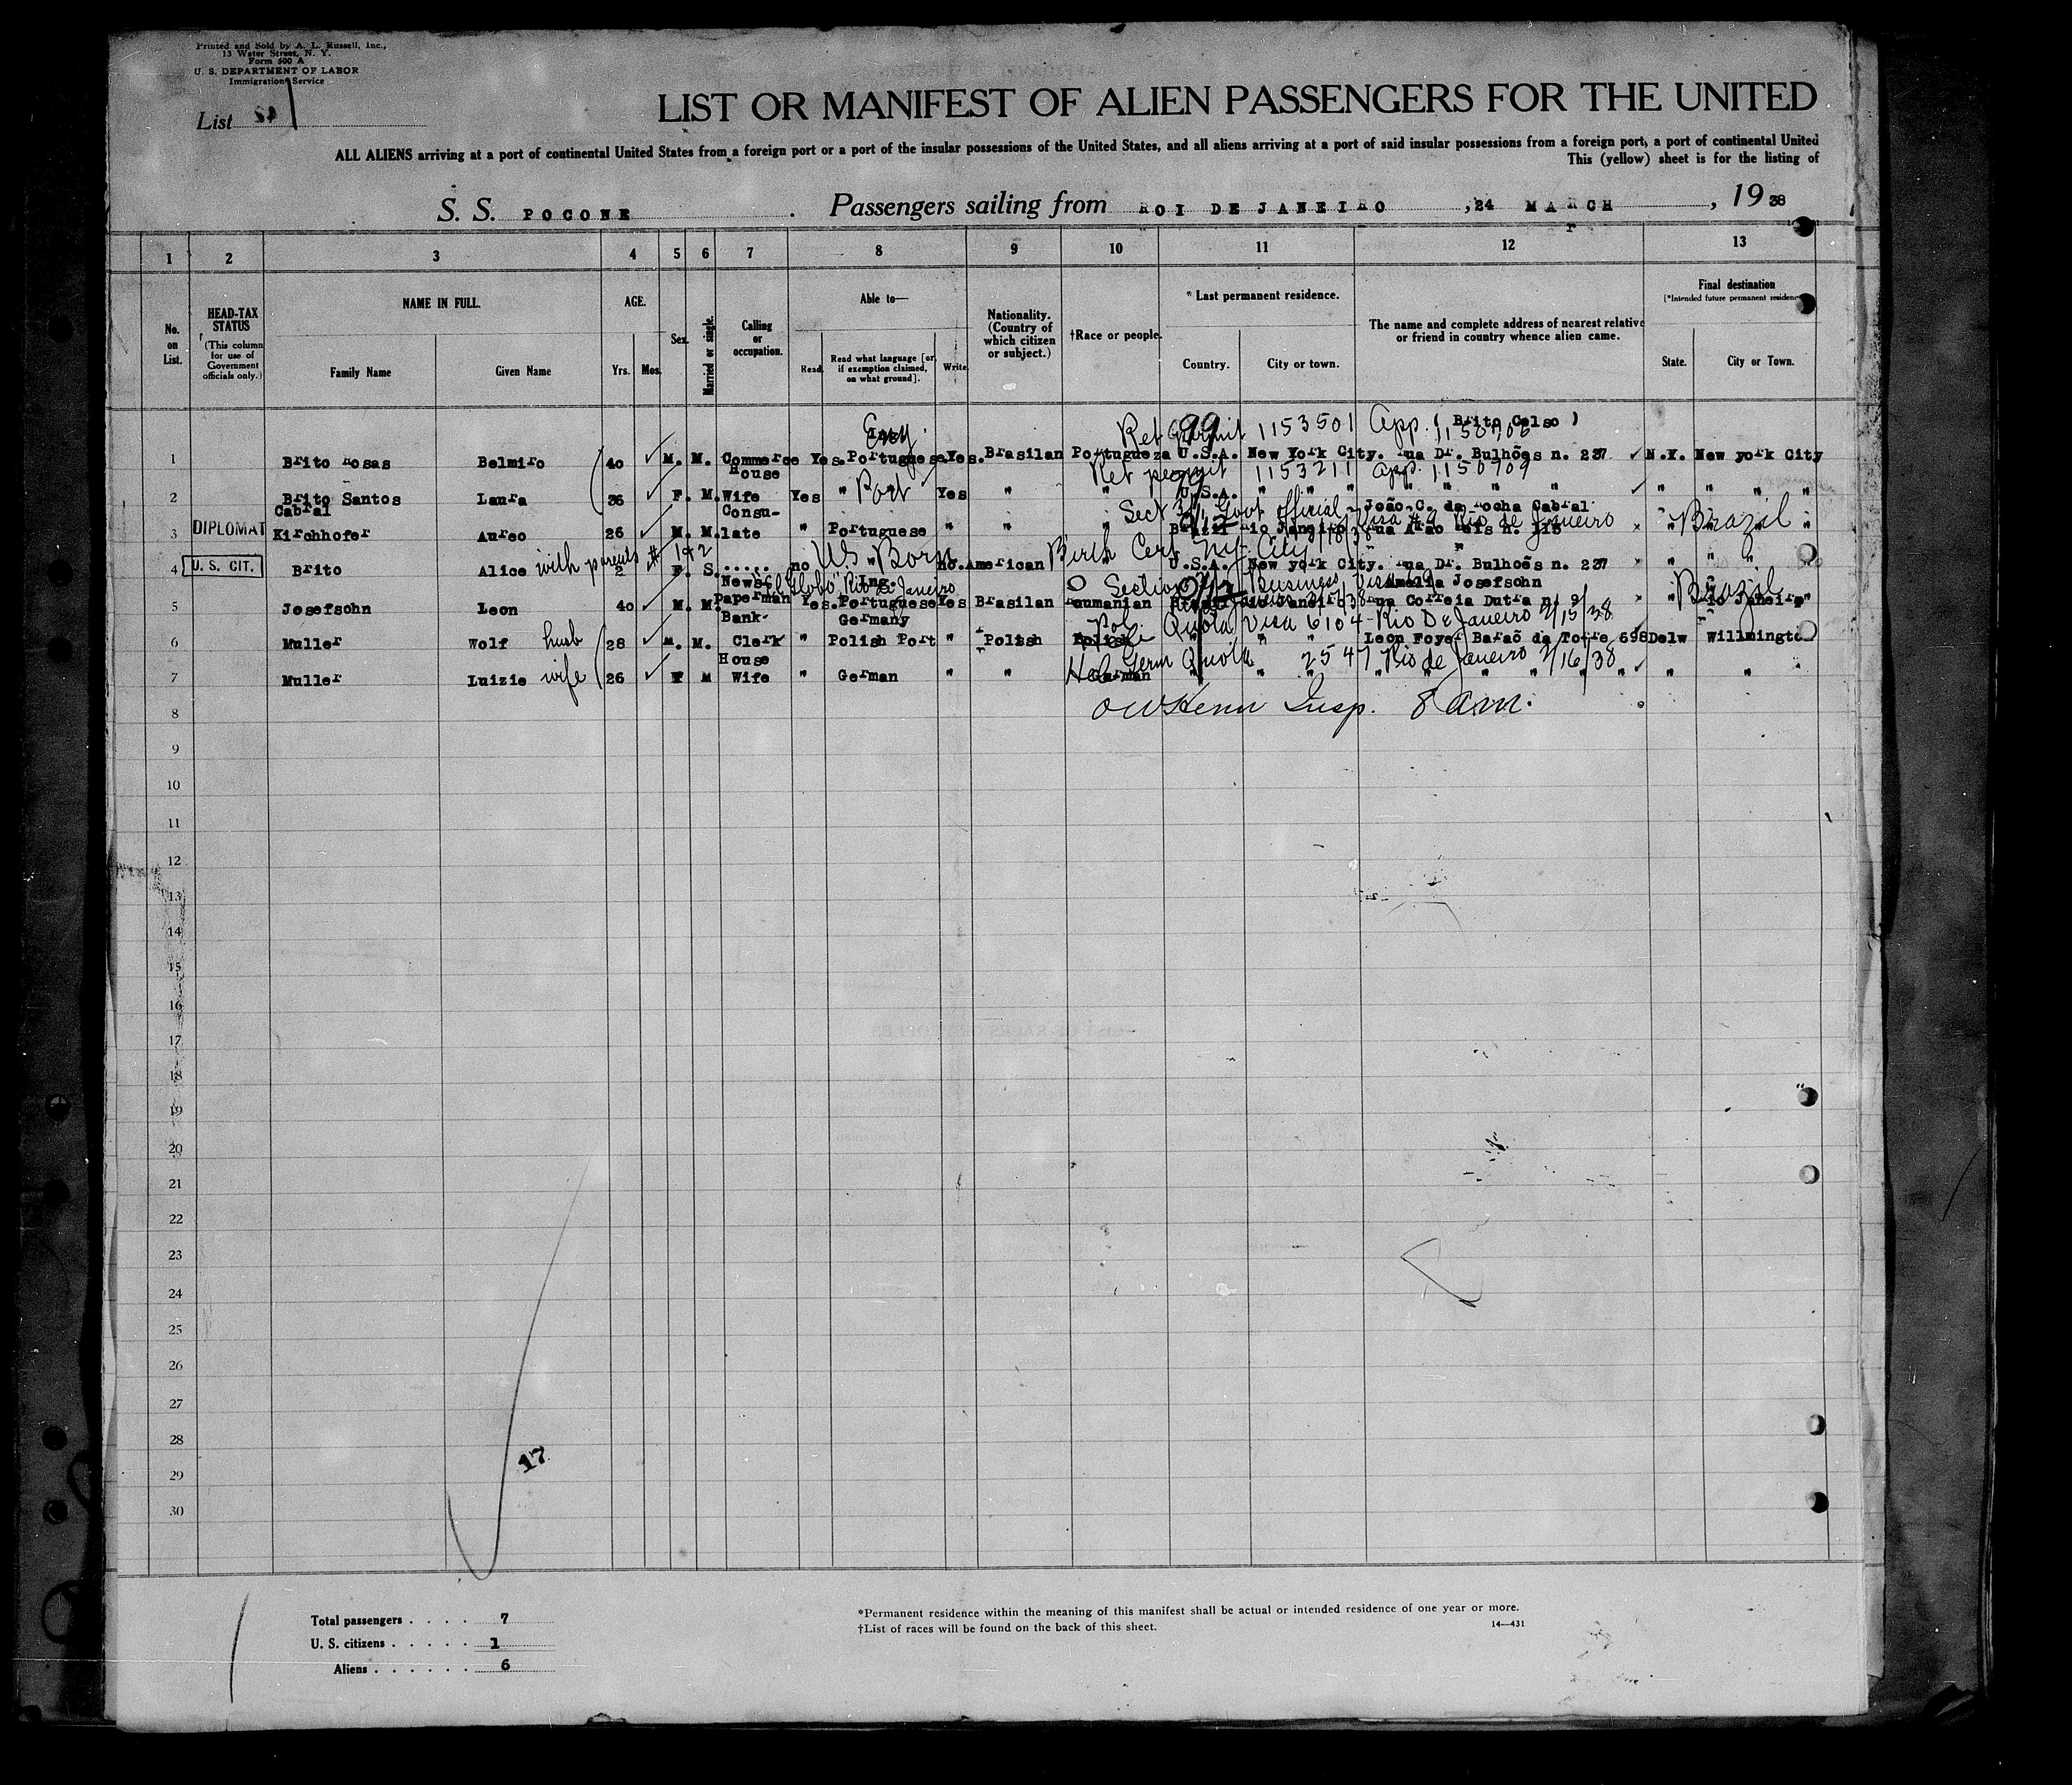 Printed and Sold by A. L. Russell, Inc.,
13 Water Street, N. Y.
Form 500 A
U. S. DEPARTMENT OF LABOR
Immigration Service
List
LIST OR MANIFEST OF ALIEN PASSENGERS FOR THE UNITED
ALL ALIENS arriving at a port of continental United States from a foreign port or a port of the insular possessions of the United States, and all aliens arriving at a port of said insular possessions from a foreign port, a port of continental United
This (yellow) sheet is for the listing of
S. S. POCONE . Passengers sailing from ROI DE JANEIRO , 24 MARCH , 19 38
1 2 3 4 5 6 7 8 9 10 11 12 13
No. on List. HEAD-TAX STATUS (This column for use of Government officials only.) NAME IN FULL. AGE. Sex. Married or single. Calling or occupation. Able to— Nationality. (Country of which citizen or subject.) †Race or people. * Last permanent residence. The name and complete address of nearest relative or friend in country whence alien came. Final destination (*Intended future permanent residence
Family Name Given Name Yrs. Mos. Read. Read what language [or, if exemption claimed, on what ground]. Write. Country. City or town. State. City or Town.
Ret permit 1153501 App. 1158708 ( Brito Celso )
1 Brito Rosas Belmiro 40 M. M. Commerce Yes. Portuguese Yes. Brasilan Portugueza U.S.A. New York City. Rua Dr. Bulhões n. 237 N.Y. New york City
Ret permit 1153211 app. 1150909
2 Brito Santos Laura 36 F. M. House Wife Yes " Port Yes " " U.S.A. " " " " " " " " " "
Sect 3(1) Govt official João C. da Rocha Cabral
3 DIPLOMAT Cabral Kirchhofer Aureo 26 M. M. Consu- late " Portuguese " " " Brazil Rio Janeiro Rua n. 113 " Brazil "
4 U. S. CIT. Brito Alice with parents # 1 + 2 2 F. S. ..... no U.S. Born no. American Birth Cert N.Y. City U.S.A. New york City. Rua Dr. Bulhões n. 237 " " "
"El Globo" Rio de Janeiro Ing. Section 3/2 Business Amelia Josefsohn
5 Josefsohn Leon 40 M. M. News- Paperman Yes. Portuguese Yes Brasilan Roumanian Brazil Rio Janeiro Rua Correia Dutra n. 9 " Brazil Rio Janeiro
Germany Pol. Quota Visa 6104 Rio De Janeiro 2/15/38
6 Muller Wolf husb 28 M. M. Bank- Clerk " Polish Port " Polish Polish " " Leon Foyer Baraõ da Torre 698 Delw Willmington
Germ Quota 2547 Rio de Janeiro 2/16/38
7 Muller Luizie wife 26 F M House Wife " German " " German " " " " " " " " "
8 Insp. 8 am.
9
10
11
12
13
14
15
16
17
18
19
20
21
22
23
24
25
26
27
28
29
30
17
Total passengers . . . . 7
U. S. citizens . . . . . 1
Aliens . . . . . . 6
*Permanent residence within the meaning of this manifest shall be actual or intended residence of one year or more.
†List of races will be found on the back of this sheet. 14—431